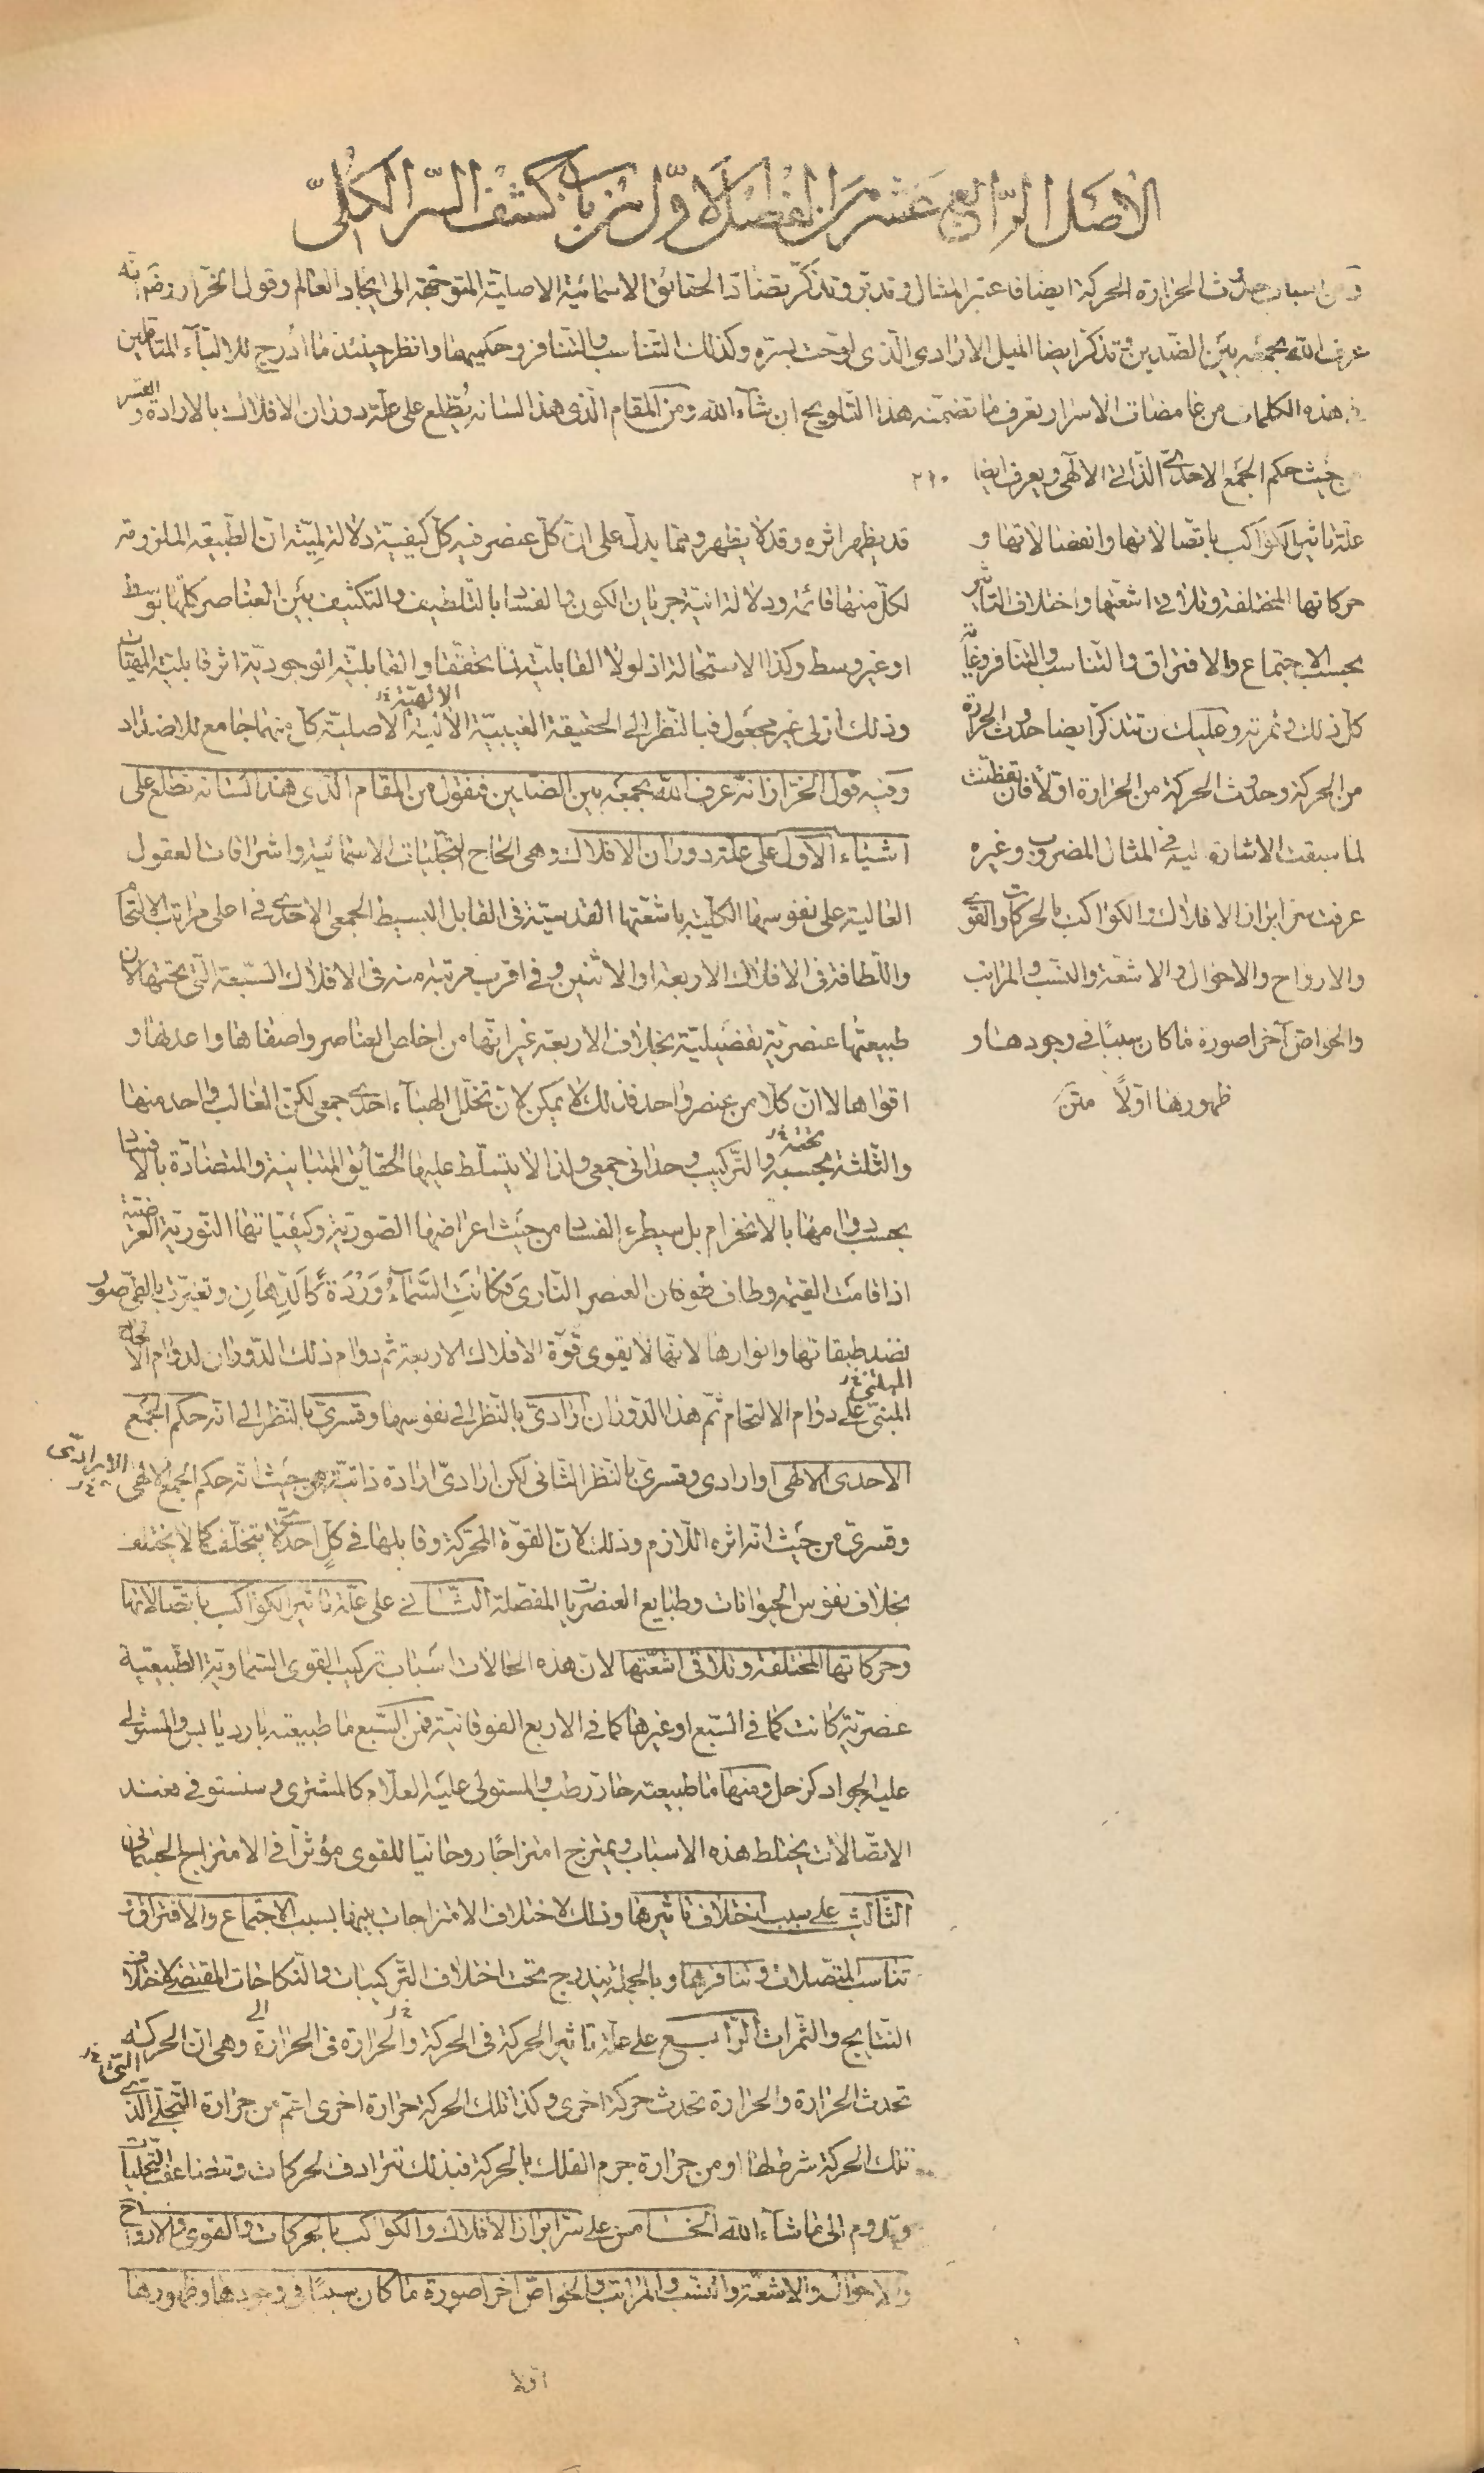 الاصل الرابع عشر من الفصل الاول من باب كشف السر الكلى
ومن اسباب حدوث الحرارة الحركة ايضا فاعتبر المثال وتدبر وتذكر تضاد الحقائق الاسمائية الاصلية المتوجهة الى ايجاد العالم وقول الخراز رضى الله عنه
عرف الله بجمعه بين الضدين وتذكر ايضا الميل الارادى الذى لوحت بسره وكذلك التناسب والتنافر وحكميهما وانظر حينئذ ما ادرج للالبآء المتأملين
فى هذه الكلمات من غامضات الاسرار تعرف ما تضمنه هذا التلويح ان شآء الله ومن المقام الذى هذا لسانه يطلع على علة دوران الافلاك بالارادة والقسر
من حيث حكم الجمع الاحدى الذاتى الالهى ويعرف ايضا ٢١٠
علة تاثير الكواكب باتصالاتها وانفصالاتها و
حركاتها المختلفة وتلاقى اشعتها واختلاف التاثير
بحسب الاجتماع والافتراق والتناسب والتنافر وغاية
كل ذلك وثمرته وعليك ان تتذكر ايضا حدوث الحرارة
من الحركة وحدوث الحركة من الحرارة اولا فان تفطنت
لما سبقت الاشارة اليه فى المثال المضروب وغيره
عرفت سر ابراز الافلاك والكواكب بالحركات والقوى
والارواح والاحوال والاشعة والنسب والمراتب
والخواص آخرا صورة ما كان سببا فى وجودها و
ظهورها اولاً متن
قد يظهر اثره وقد لا يظهر ومما يدل على ان كل عنصر فيه كل كيفية دلالة لمية ان الطبيعة الملزومة
لكل منها قائمة ودلالة انية جريان الكون والفساد بالتلطيف والتكثيف بين العناصر كلها بتوسط
او غير وسط وكذا الاستحالة اذ لولا القابلية لما تحققا والقابلية الوجودية اثر قابلية المهيات
وذلك ازلى غير مجعول فبالنظر الى الحقيقة الغيبية الالهية الاصلية كل منها جامع للاضداد
وفيه قول الخراز انه عرف الله بجمعه بين الضدين فنقول من المقام الذى هذا لسانه نطلع على
اشياء الاول على علة دوران الافلاك وهى الحاح التجليات الاسمائية واشراقات العقول
العالية على نفوسها الكلية باشعتها القدسية فى القابل البسيط الجمعى الاحدى فى اعلى مراتب الالتحام
واللطافة فى الافلاك الاربعة او الاثنين وفى اقرب مرتبة منه فى الافلاك السبعة التى تحتها لان
طبيعتها عنصرية تفضيلية بخلاف الاربعة غير انها من اخاص العناصر واصفاها واعدلها و
اقواها لا ان كلا من عنصر واحد فذلك لا يمكن لان تخلل الهبآء احدى جمعى لكن الغالب فى احد منها
والثلثة بحسبه والتركيب وحدانى جمعى ولذا لا يتسلط عليها الحقايق المتباينة والمتضادة بالافساد
بحسب دوامها بالانخرام بل سيطرء الفساد من حيث اعراضها الصورية وكيفياتها النورية العرضية
اذا قامت القيمة وطاف طوفان العنصر النارى فكانت السماء وردة كالدهان وتغيرت بالطى صور
نضد طبقاتها وانوارها لانها لا يقوى قوة الافلاك الاربعة ثم دوام ذلك الدوران لدوام الالحاح
المبنى على دوام الالتحام ثم هذا الدوران ارادى بالنظر الى نفوسها وقسرى بالنظر الى انه حكم الجمع
الاحدى الالهى او ارادى وقسرى بالنظر الثانى لكن ارادى ارادة ذاتية من حيث انه حكم الجمع الالهى الارادى
وقسرى من حيث انه اثره اللازم وذلك لان القوة المحركة وقابلها فى كل احدى لا يتخلف كما لا يختلف
بخلاف نفوس الحيوانات وطبايع العنصريات المفصلة الثانى على علة تاثير الكواكب باتصالاتها
وحركاتها المختلفة وتلاقى اشعتها لان هذه الحالات اسباب تركيب القوى السماوية الطبيعية
عنصرية كانت كما فى السبع او غيرها كما فى الاربع الفوقانية فمن السبع ما طبيعته بارد يابس والمستولى
عليه الجواد كزحل ومنها ما طبيعته حار رطب والمستولى عليه العلام كالمشترى وسنستوفى فعند
الاتصالات يختلط هذه الاسباب ويمتزج امتزاجا روحانيا للقوى مؤثرا فى الامتزاج الجسمانى
الثالث على سبب اختلاف تاثيرها وذلك لاختلاف الامتزاجات بينها بسبب الاجتماع والافتراق و
تناسب المتصلات وتنافرها وبالجملة يندرج تحت اختلاف التركيبات والنكاحات المقتضى لاختلاف
النتايج والثمرات الرابع على علة تاثير الحركة فى الحركة والحرارة فى الحرارة وهى ان الحركة
تحدث الحرارة والحرارة تحدث حركة اخرى وكذا تلك الحركة حرارة اخرى اتم من حرارة التجلى الذى
تلك الحركة شرطها او من حرارة جرم الفلك بالحركة فبذلك تترادف الحركات وتتضاعف التجليات
ويدوم الى ما شآء الله الخامس على سر ابراز الافلاك والكواكب بالحركات والقوى والارواح
والاحوال والاشعة والنسب والمراتب والخواص اخرا صورة ما كان سببا فى وجودها وظهورها
اولا